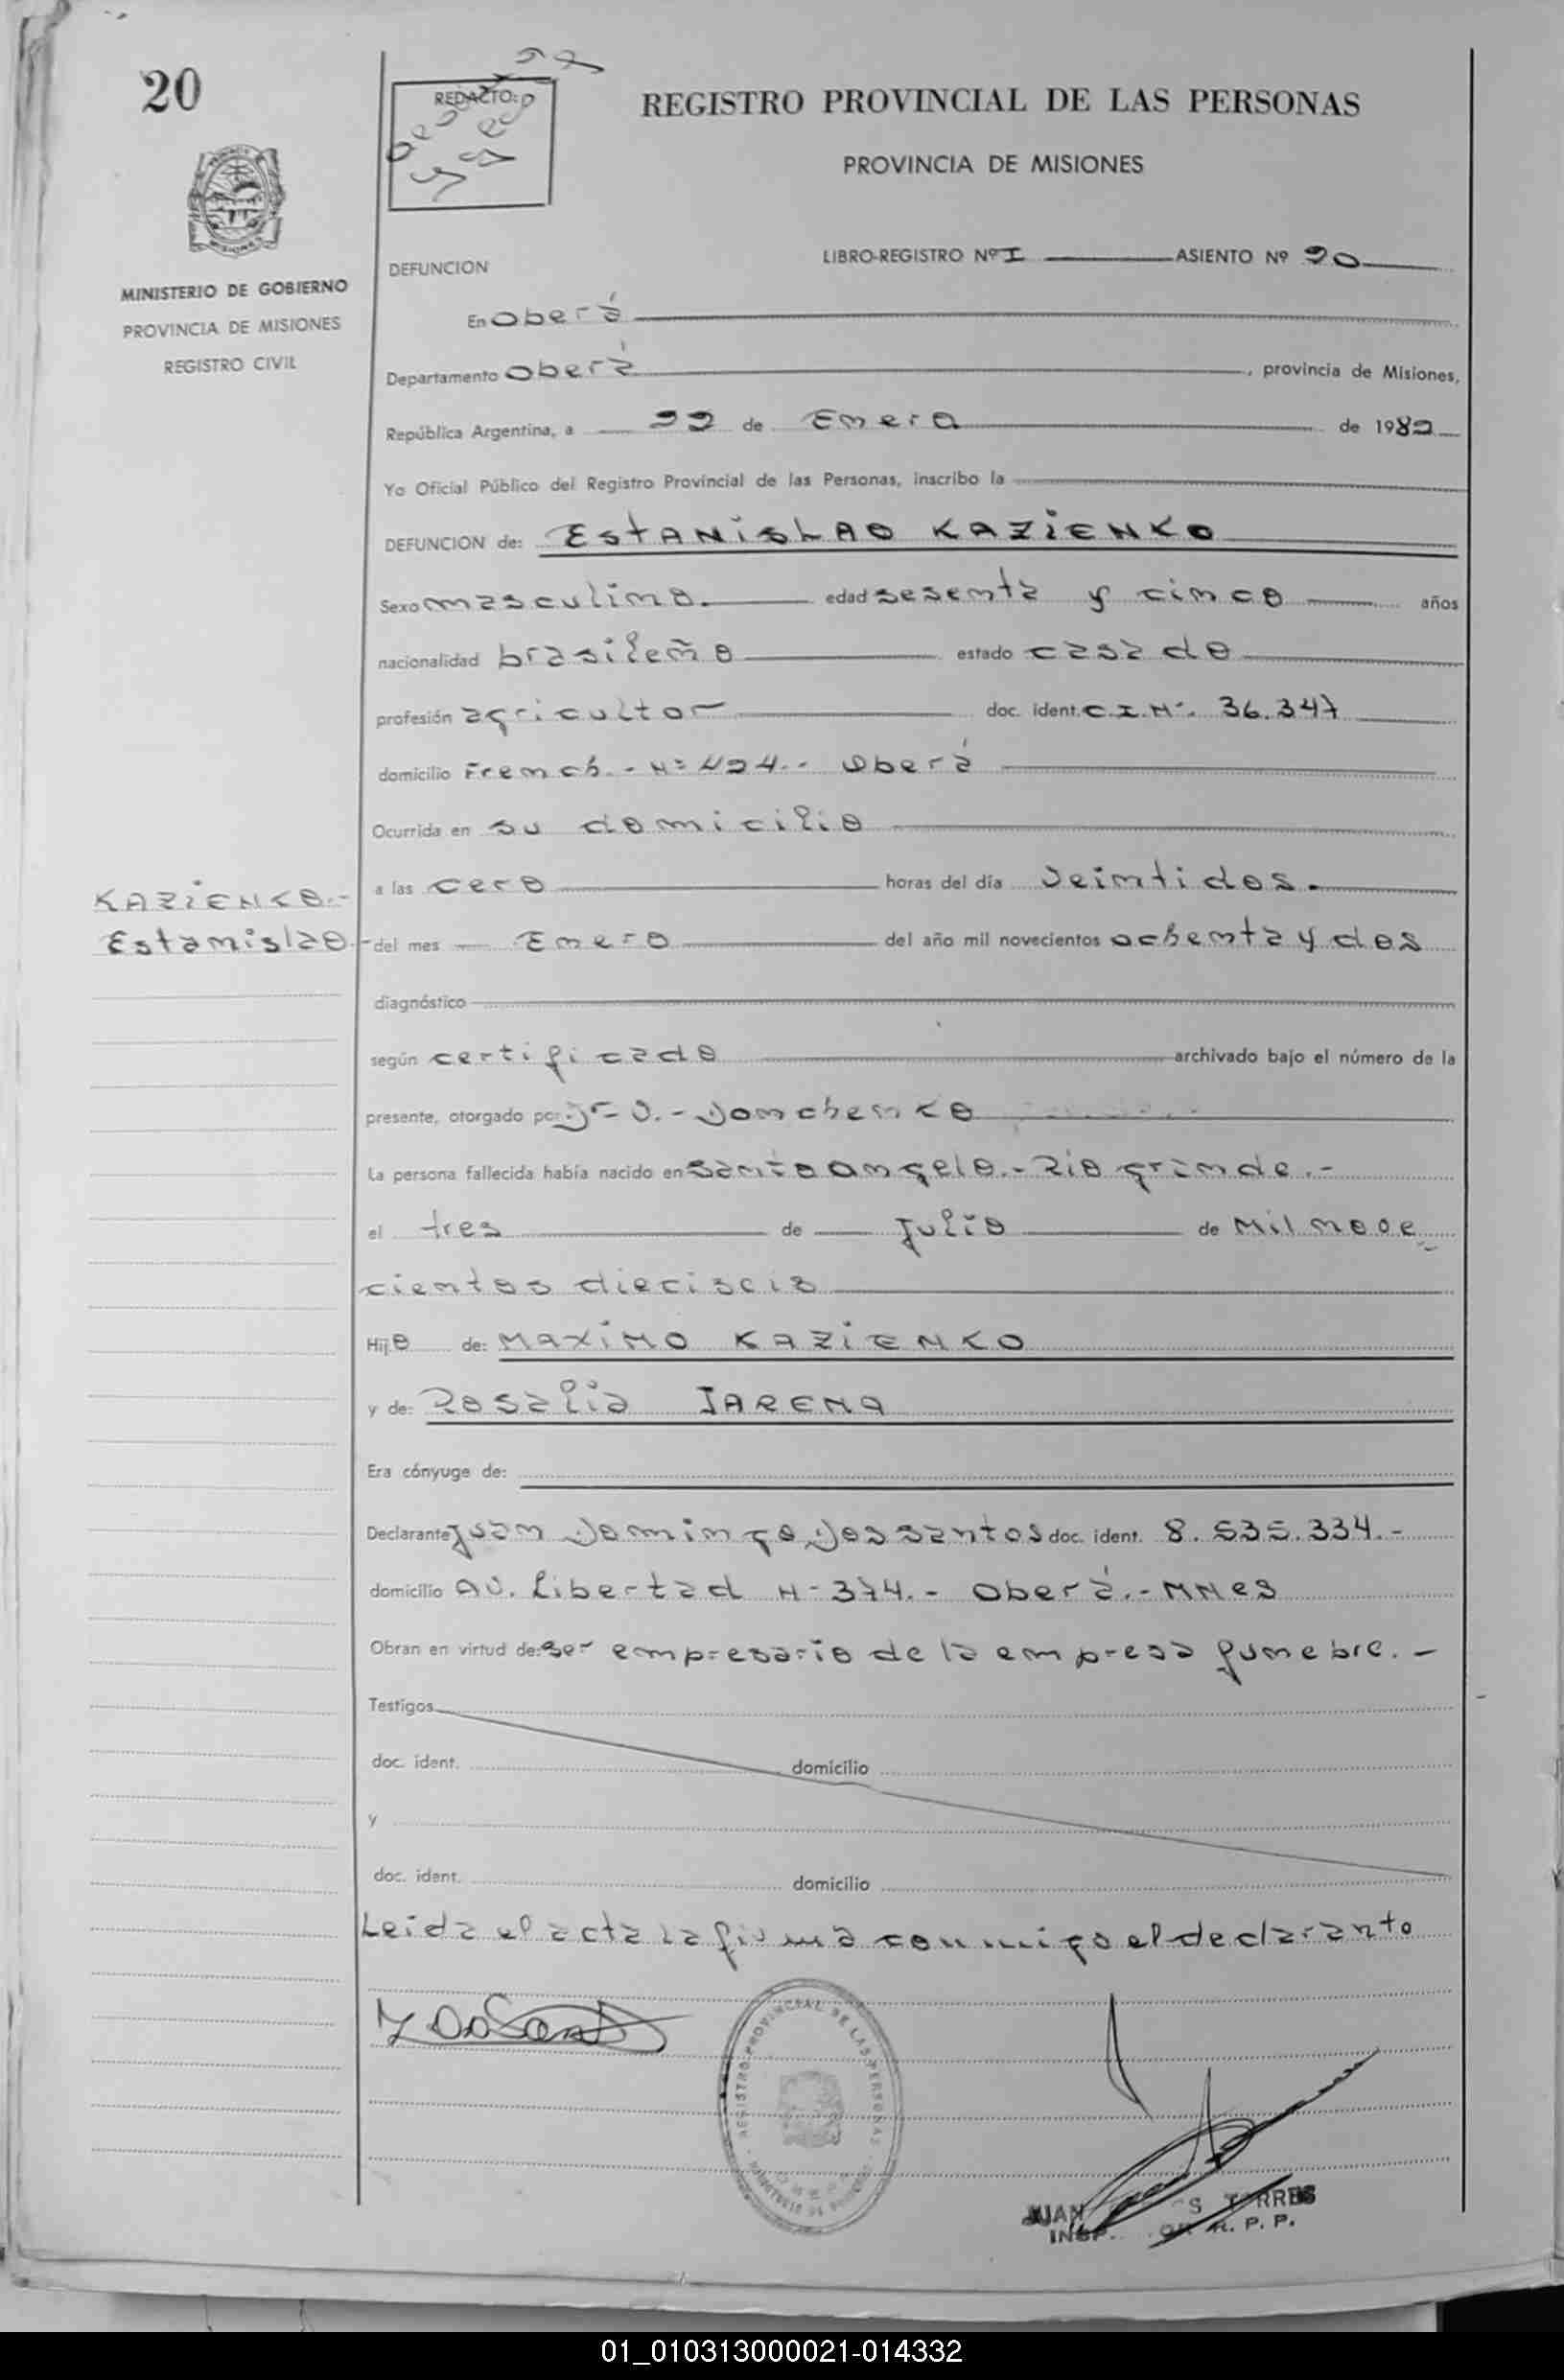 20
REDACTO:
REGISTRO PROVINCIAL DE LAS PERSONAS
PROVINCIA DE MISIONES
MINISTERIO DE GOBIERNO
PROVINCIA DE MISIONES
REGISTRO CIVIL
DEFUNCION
LIBRO-REGISTRO Nº I ASIENTO Nº 20
En Oberá
Departamento Oberá, provincia de Misiones,
República Argentina, a 22 de Enero de 1982
Yo Oficial Público del Registro Provincial de las Personas, inscribo la
DEFUNCION de: EStANiSLAO KAZiENKO
Sexo masculino. edad sesenta y cinco años
nacionalidad brasileño estado casado
profesión agricultor doc. ident. C.I.Nº. 36.347
domicilio French.- Nº 424.- Oberá
Ocurrida en su domicilio
a las cero horas del día veintidos.
KAZiENKO.-
Estanislao.-
del mes Enero del año mil novecientos ochenta y dos
diagnóstico
según certificado archivado bajo el número de la
presente, otorgado por: Dr- V.- Domchenko
La persona fallecida había nacido en Santo Angelo.- Rio grande.-
el tres de Julio de Mil nove
cientos dieciseis
Hijo de: MAXiMO KAZiENKO
y de: Rosalia JARENA
Era cónyuge de:
Declarante Juan Domingo Dossantos doc. ident. 8.535.334.-
domicilio AV. Libertad N- 374.- Oberá.- MNes
Obran en virtud de: ser empresario de la empresa funebre.-
Testigos
doc. ident. domicilio
y
doc. ident. domicilio
Leida el acta la firma conmigo el declarante
REGISTRO PROVINCIAL DE LAS PERSONAS
JUAN TORRES
INSP. R. P. P.
01_010313000021-014332